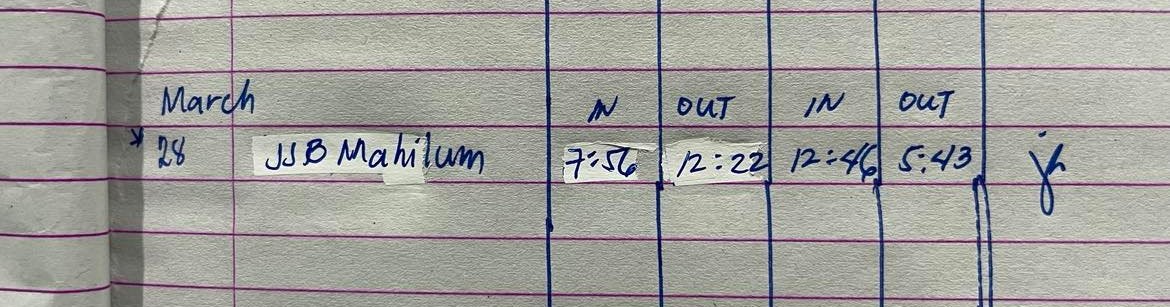 March IN OUT IN OUT
28 JJB Mahilum 7:56 12:22 12:46 5:43